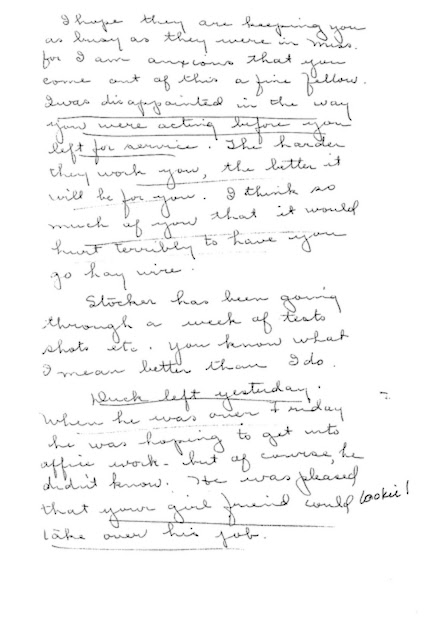 I hope they are keeping you
as busy as they were in Miss.
for I am anxious that you
come out of this a fine fellow.
I was disappointed in the way
you were acting before you
left for service. The harder
they work you, the better it
will be for you. I think so
much of you that it would
hurt terribly to have you
go hay wire.
Stocker has been going
through a week of tests
shots etc. You know what
I mean better than I do.
Duck left yesterday.
When he was over Friday
he was hoping to get into
office work - but of course, he
didn't know. He was pleased
that your girl friend could Lookie!
take over his job.